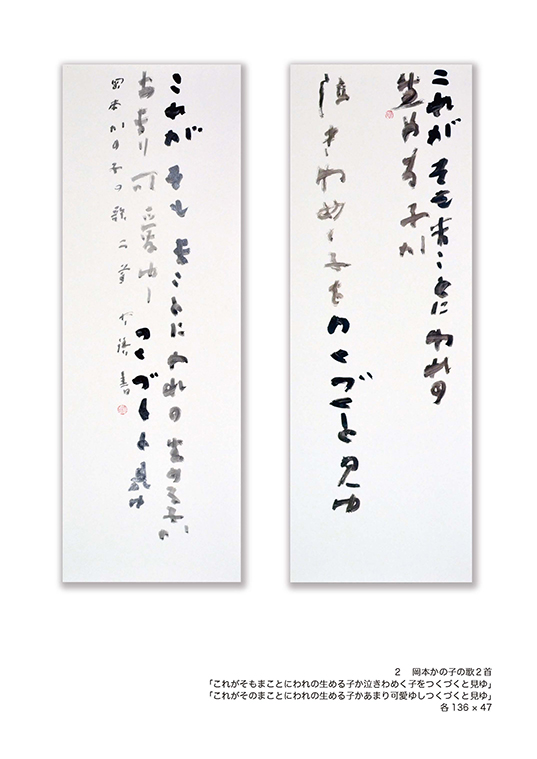 これがそもまことにわれの
生める子か
泣きわめく子をつくづくと見ゆ
これがそもまことにわれの生める子か
あまり可愛ゆしつくづくと見ゆ
岡本かの子の歌二首 書
2 岡本かの子の歌2首
「これがそもまことにわれの生める子か泣きわめく子をつくづくと見ゆ」
「これがそのまことにわれの生める子かあまり可愛ゆしつくづくと見ゆ」
各136 × 47